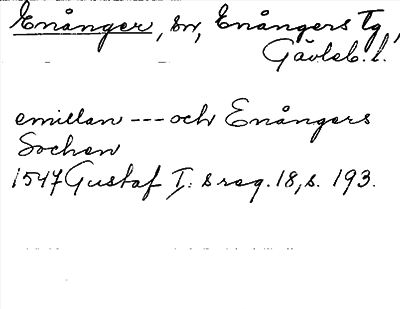 Enånger, sn, Enångers Tg,
Gävleb. l.
emillan --- och Enångers
Sochen
1547 Gustaf I: s reg. 18, s. 193.